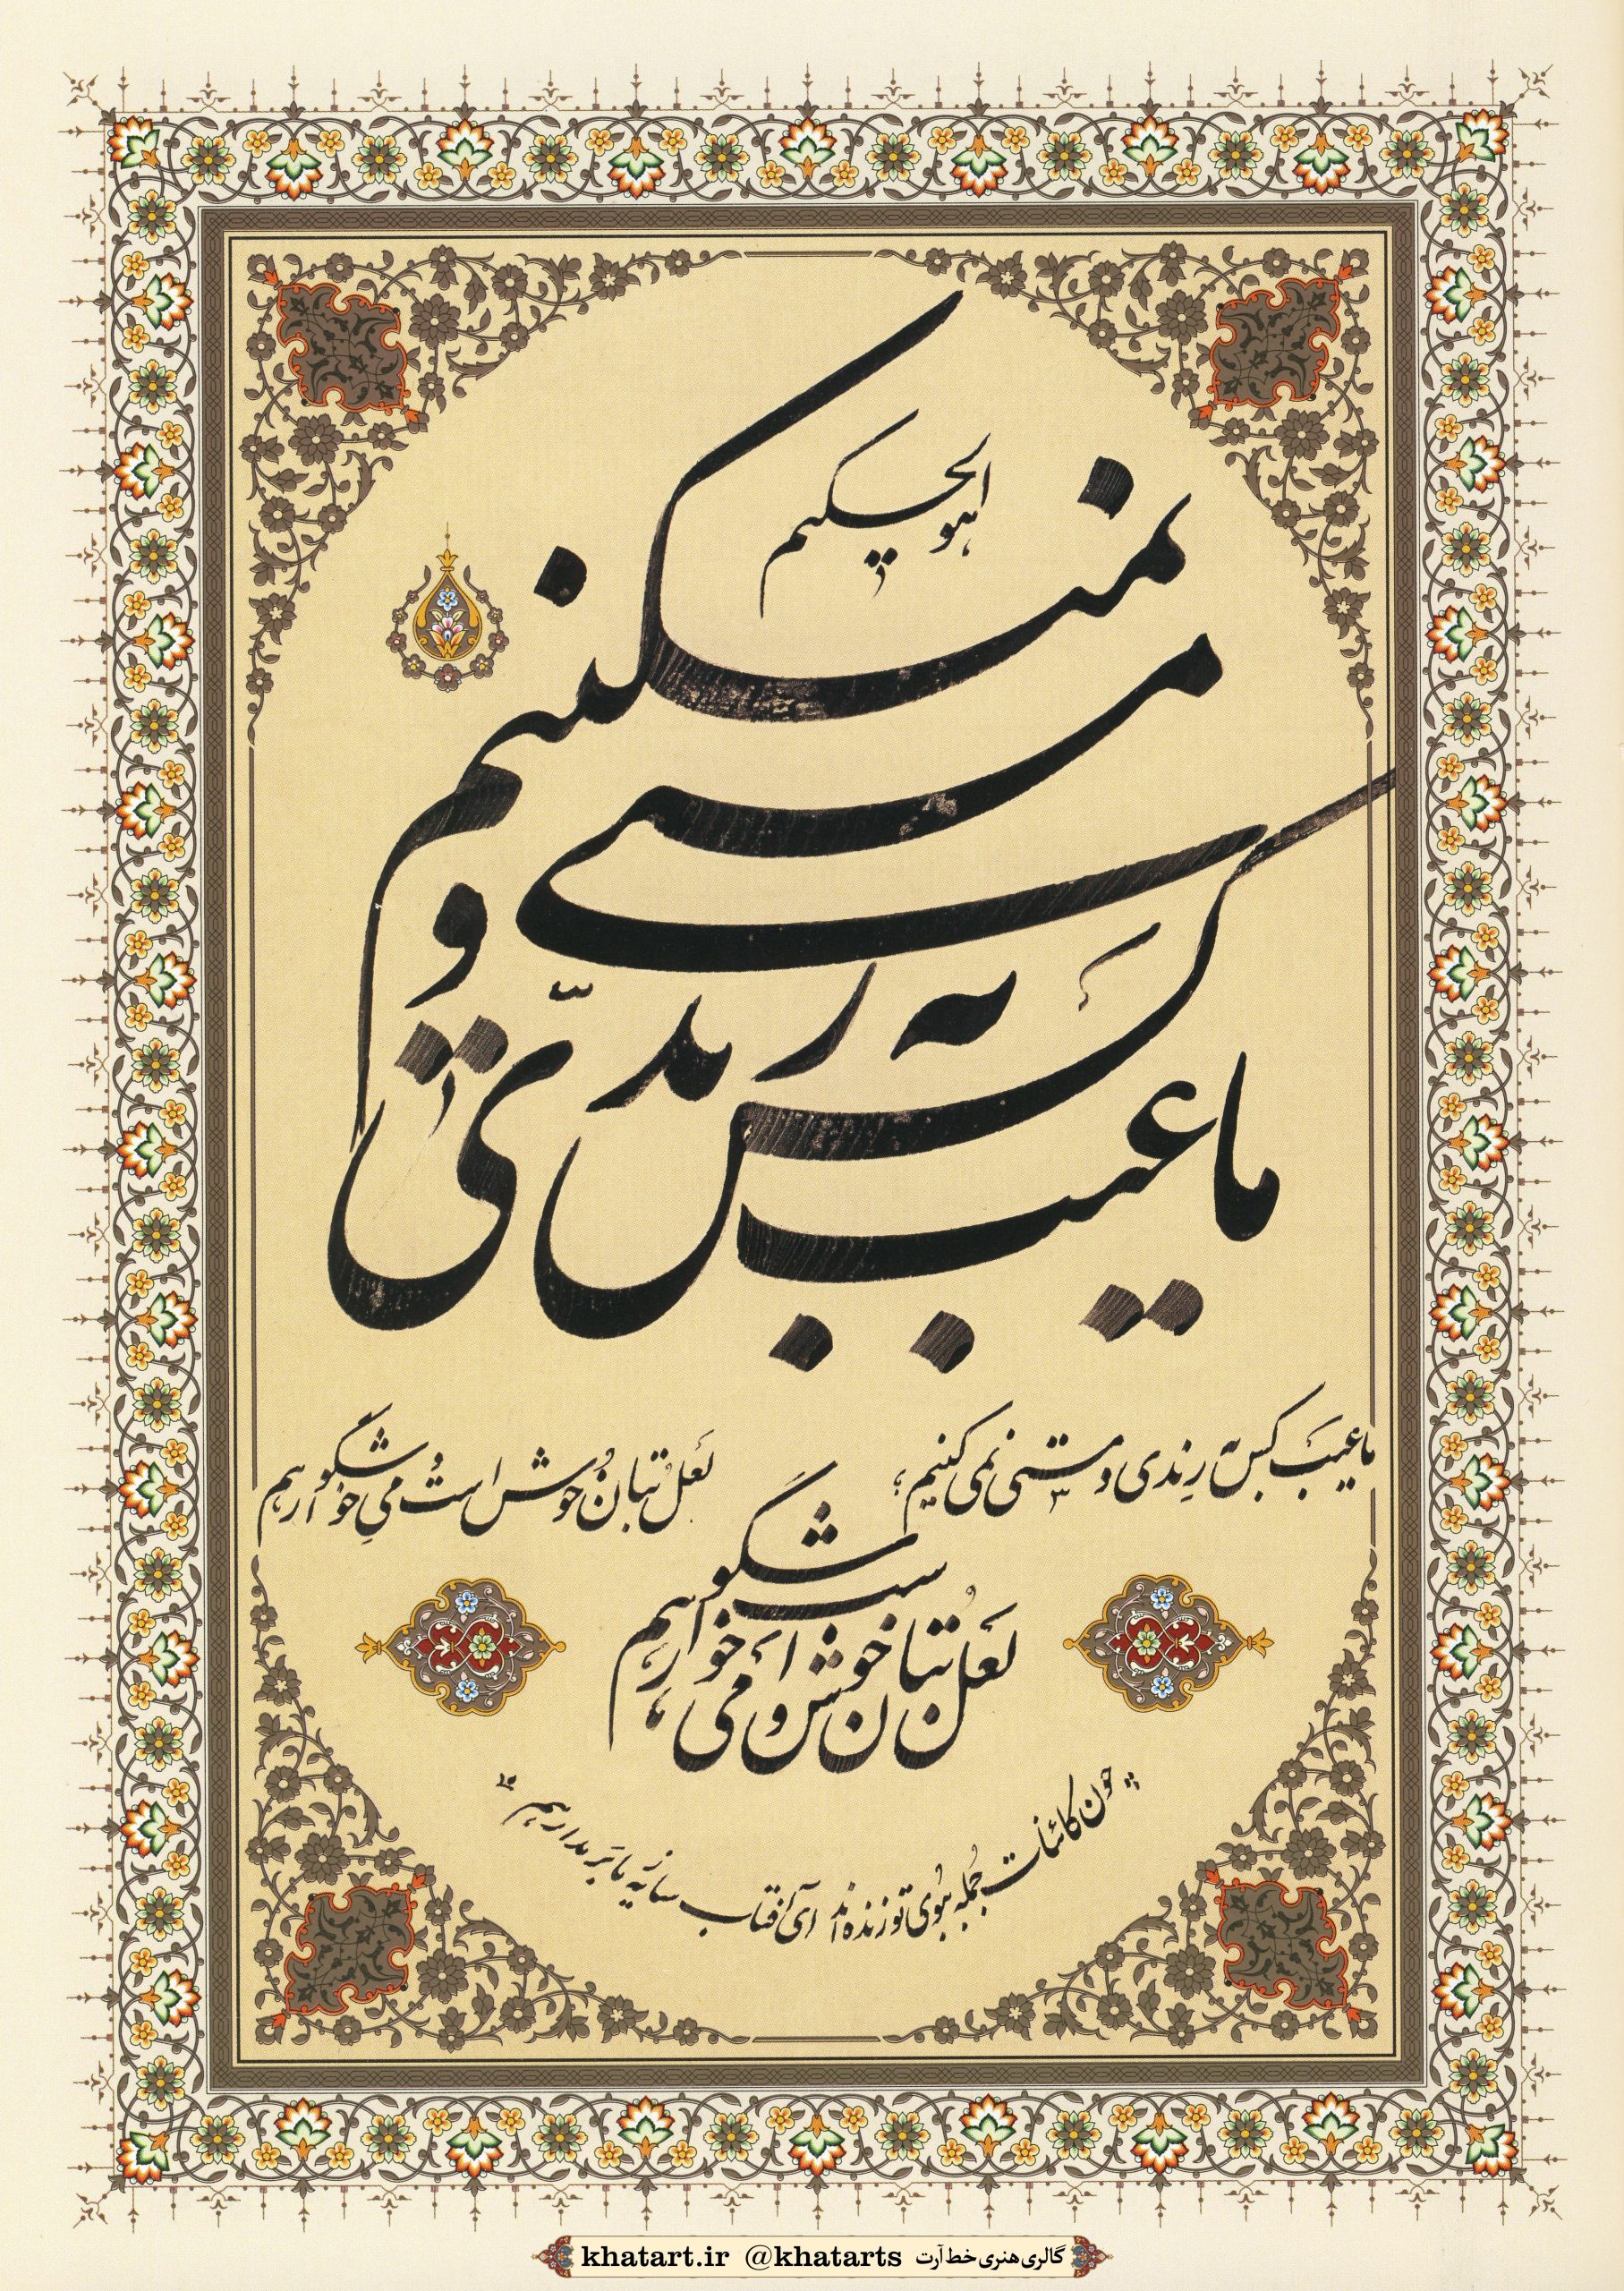 هو الحکیم
ما عیب کس به رندی و مستی نمی کنیم
ما عیب کس به رندی و مستی نمی کنیم
لعل بتان خوش است و می خوشگوار هم
لعل بتان خوش است و می خوشگوار هم
چون کائنات جمله ببوی تو زنده اند ای آفتاب سایه ز ما بر مدار هم
گالری هنری خط آرت @khatarts khatart.ir